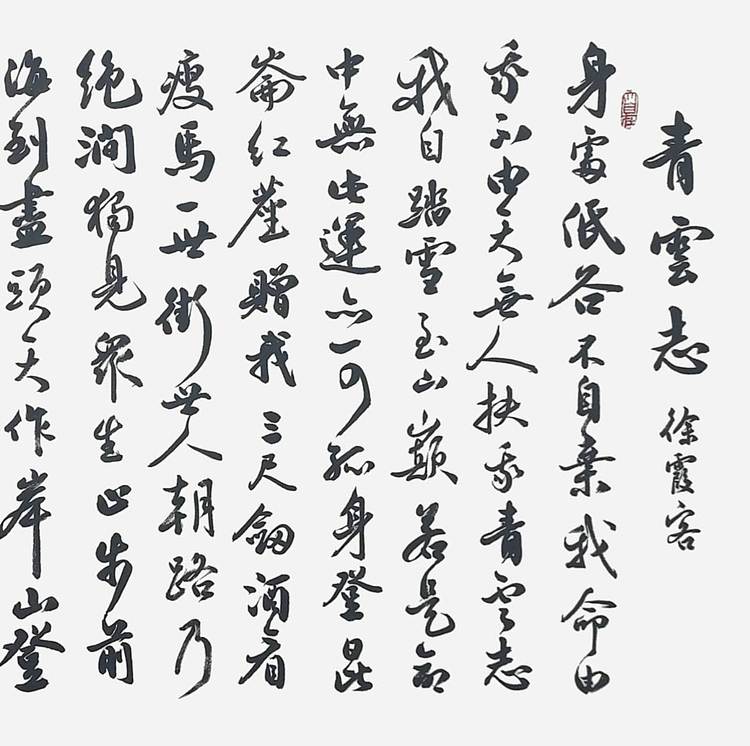 青雲志 徐霞客
身處低谷不自棄我命由
我不由天無人扶我青雲志
我自踏雪至山巔若是命
中無此運亦可孤身登昆
崙紅塵贈我三尺劍酒肴
瘦馬一世街世人朝路乃
絶澗獨見眾生止步前
海到盡頭天作岸山登